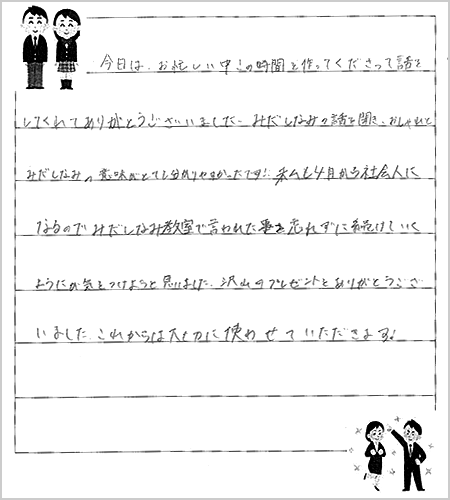 今日は、お忙しい中この時間を作ってくださって話を
してくれてありがとうございました。みだしなみの話を聞き、おしゃれと
みだしなみの意味がとても分かりやすかったです！私も4月から社会人に
なるのでみだしなみ教室で言われた事を忘れずに続けていく
ように気をつけようと思いました。沢山のプレゼントとありがとうござ
いました。これからは大切に使わせていただきます！